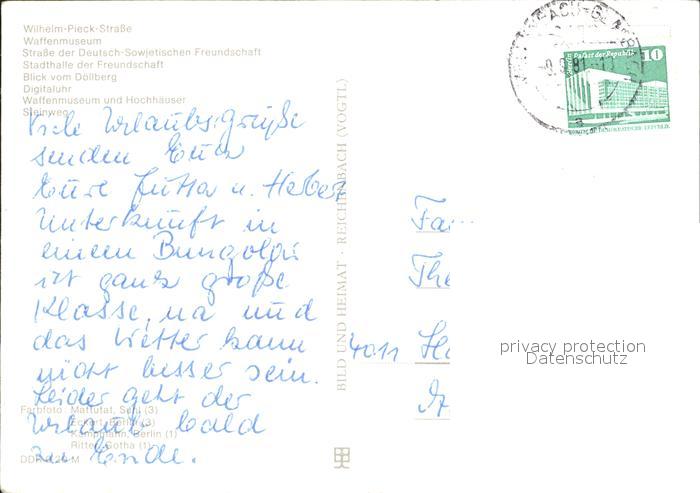 Wilhelm-Pieck-Straße
Waffenmuseum
Straße der Deutsch-Sowjetischen Freundschaft
Stadthalle der Freundschaft
Blick vom Döllberg
Digitaluhr
Waffenmuseum und Hochhäuser
Steinweg
Viele Urlaubsgrüße
senden Euch
Eure Jutta u.
Unterkunft in
einem Bungolow
ist ganz große
Klasse, na und
das Wetter kann
nicht besser sein.
Leider geht der
Urlaub bald
zu Ende.
Farbfoto: Mattutat, Suhl (3)
Eckert, Berlin (3)
Kampmann, Berlin (1)
Ritter, Gotha (1)
DDR M
BILD UND HEIMAT · REICHENBACH (VOGTL)
Berlin, Palast der Republik
10
DEUTSCHE DEMOKRATISCHE REPUBLIK
Fa
The
4011 Ha
privacy protection
Datenschutz